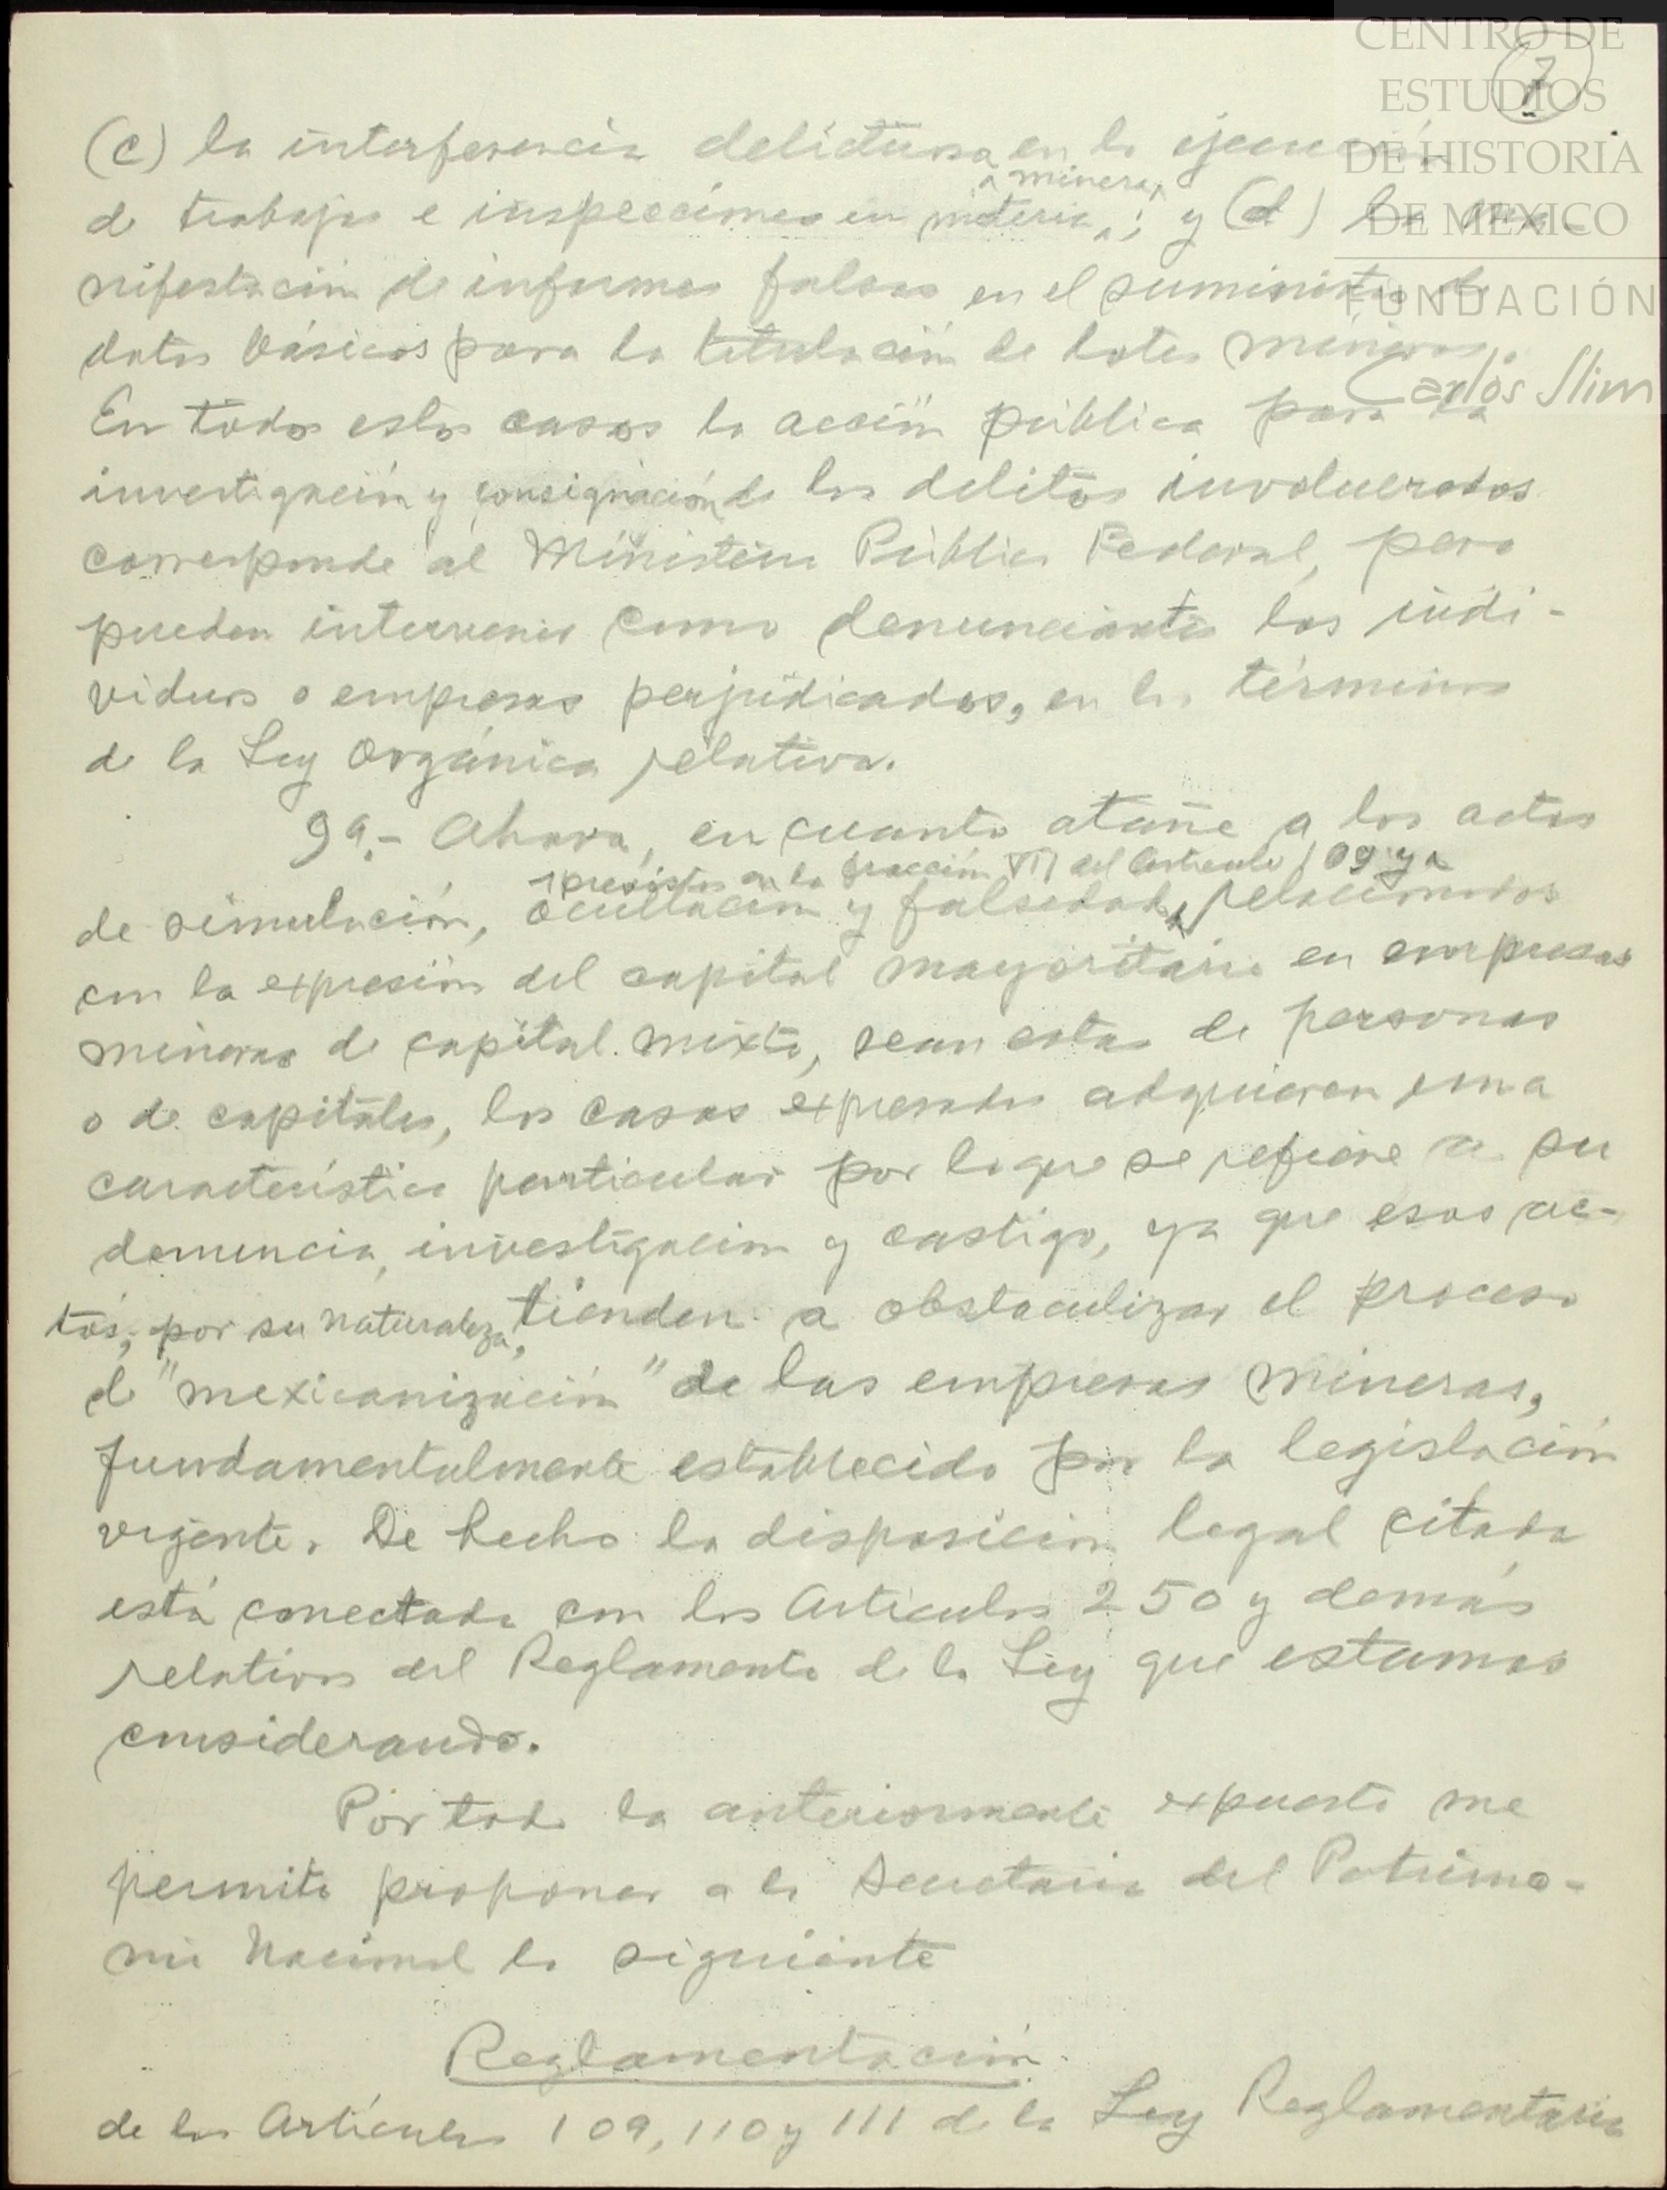 CENTRO DE
ESTUDIOS
DE HISTORIA
DE MEXICO
FUNDACIÓN
Carlos Slim
7
(c) la interferencia delictuosa en la ejecución
de trabajos e inspecciones en materia minera; y (d) la ma-
nifestación de informes falsos en el suministro de
datos básicos para la titulación de lotes mineros.
En todos estos casos la acción pública para la
investigación y consignación de los delitos involucrados
corresponde al Ministerio Público Federal, pero
pueden intervenir como denunciantes los indi-
viduos o empresas perjudicados, en los términos
de la Ley Orgánica relativa.
9a.- Ahora, en cuanto atañe a los actos
previstos en la fracción VII del Artículo 109 y a
de simulación, ocultación y falsedad, relacionados
con la expresión del capital mayoritario en empresas
mineras de capital mixto, sean estas de personas
o de capitales, los casos expresados adquieren una
característica particular por lo que se refiere a su
denuncia, investigación y castigo, ya que esos ac-
tos, por su naturaleza, tienden a obstaculizar el proceso
de "mexicanización" de las empresas mineras,
fundamentalmente establecido por la legislación
vigente. De hecho la disposición legal citada
está conectada con los Artículos 250 y demás
relativos del Reglamento de la Ley que estamos
considerando.
Por todo lo anteriormente expuesto me
permito proponer a la Secretaría del Patrimo-
nio Nacional la siguiente
Reglamentación
de los Artículos 109, 110 y 111 de la Ley Reglamentaria